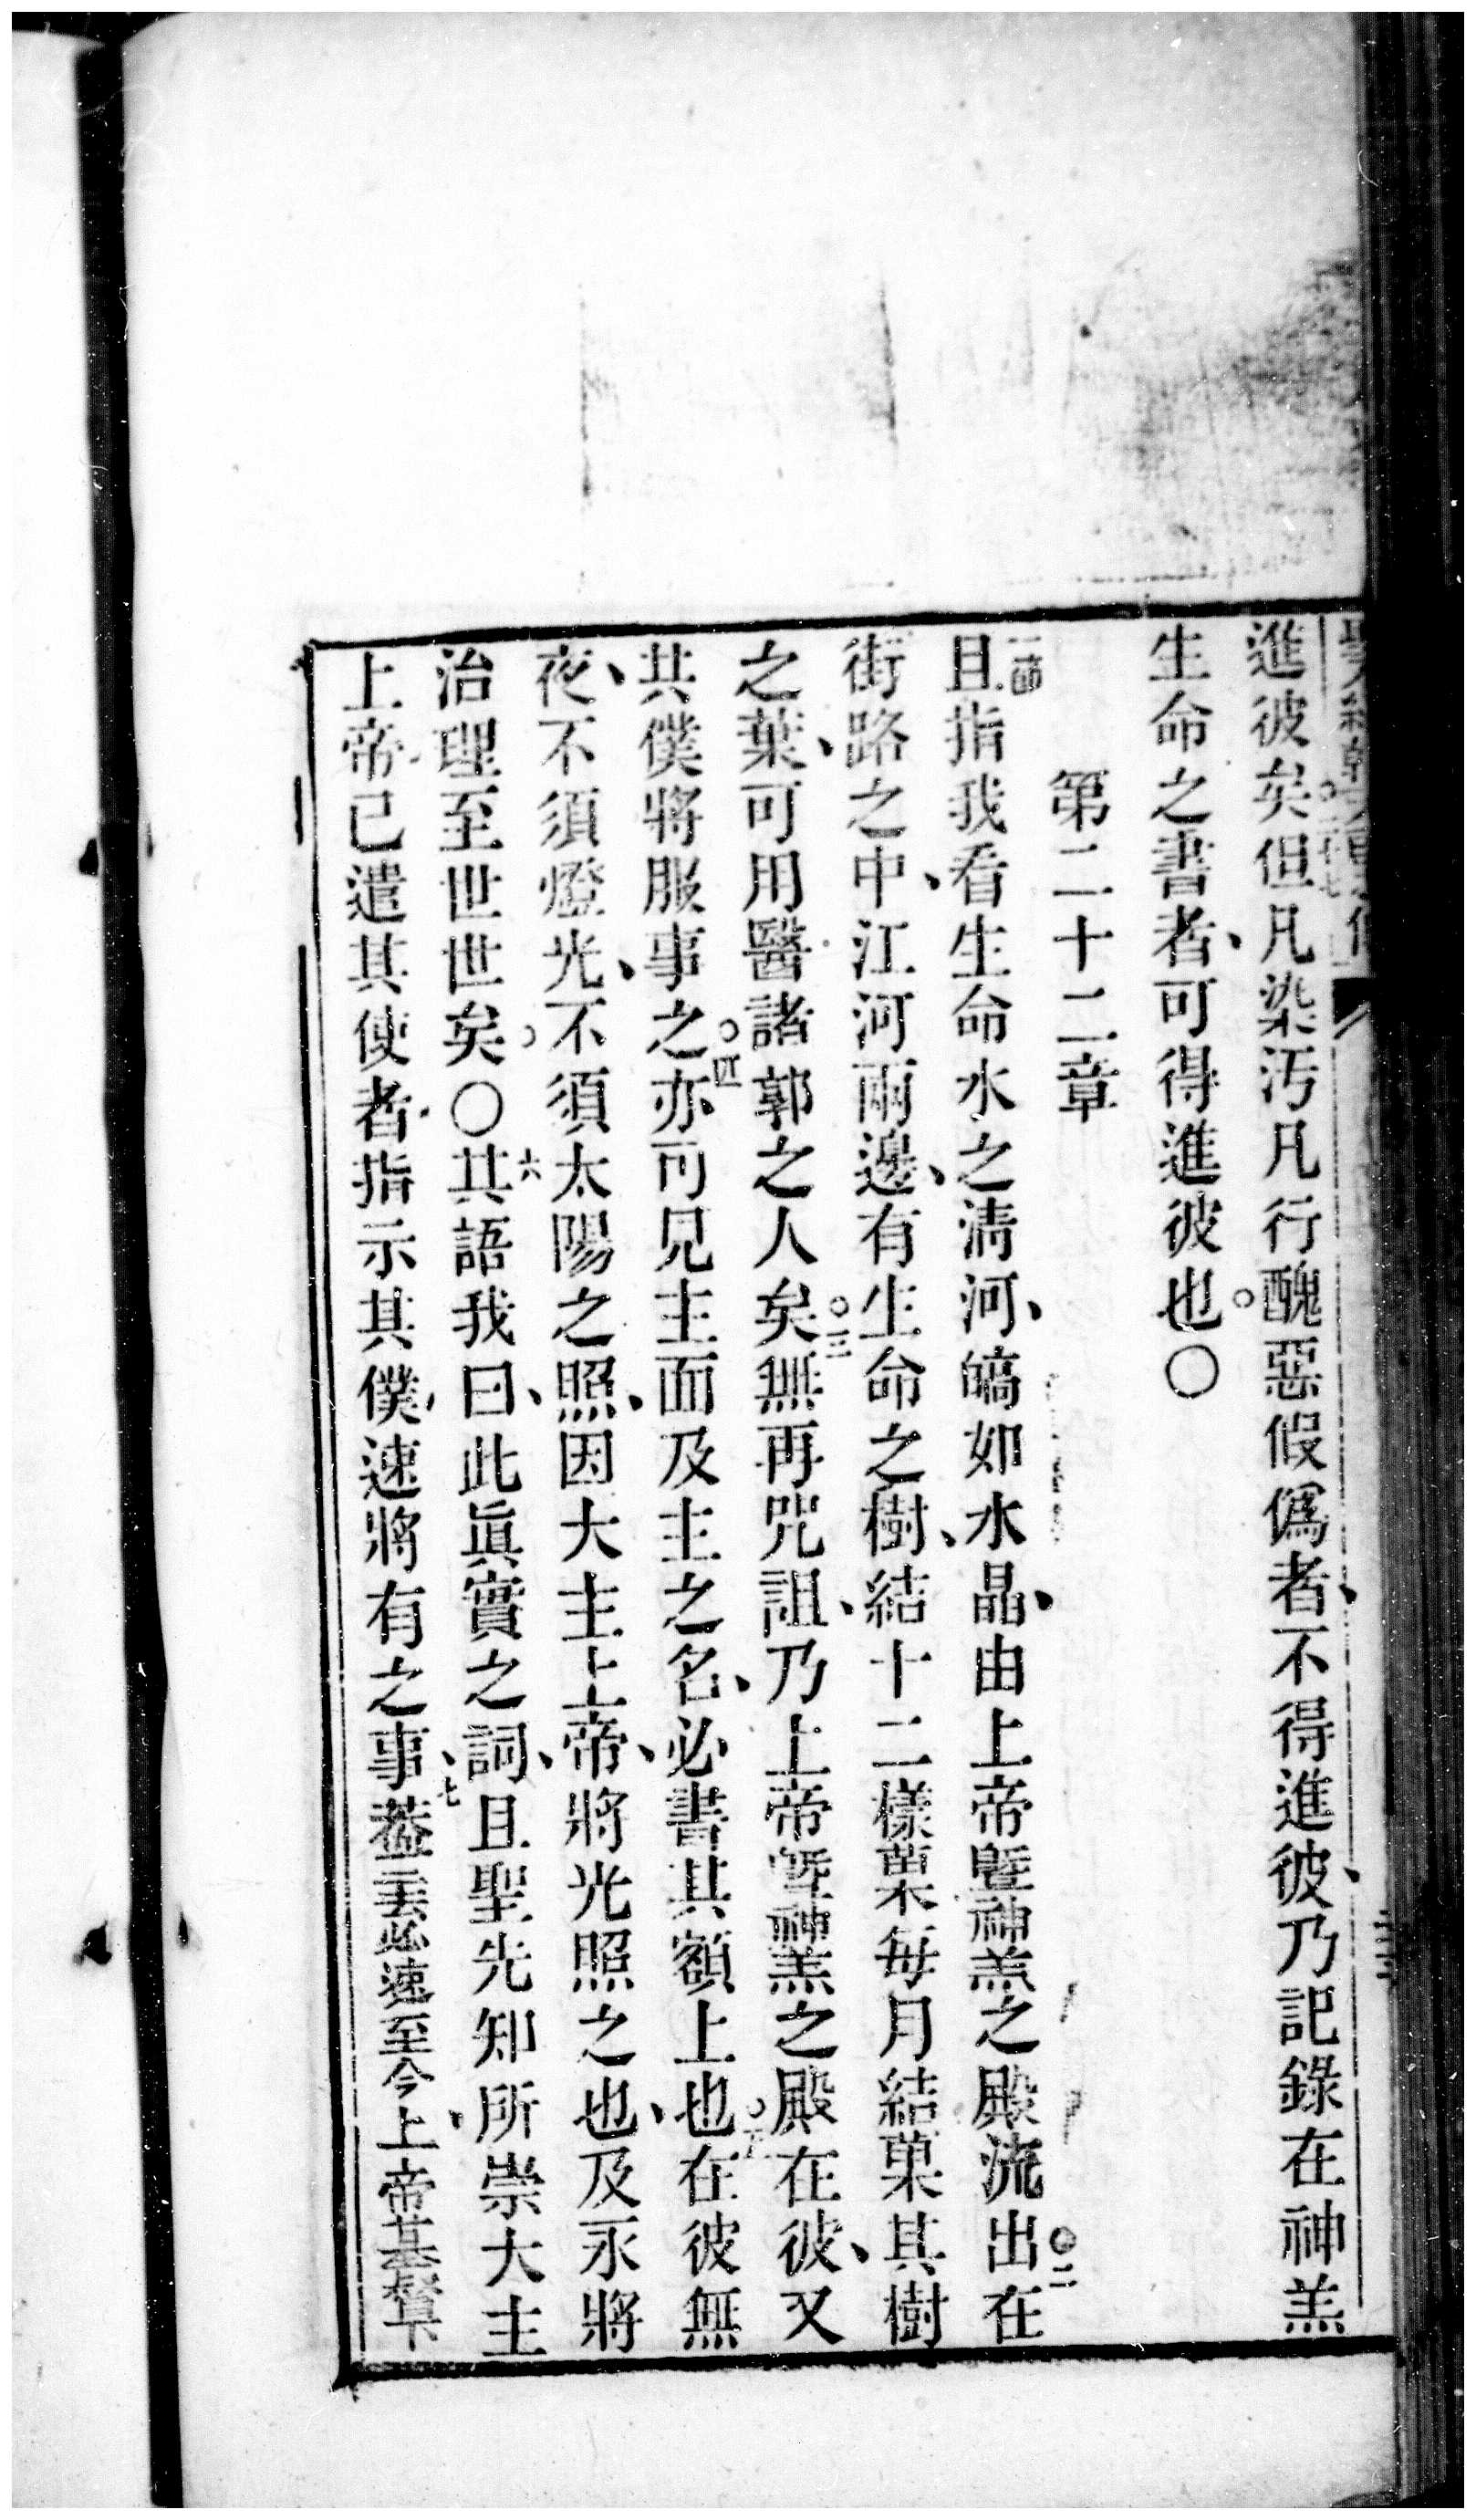 進彼矣。二十七但凡染汚凡行醜惡假僞者、不得進彼、乃記錄在神羔
生命之書者、可得進彼也。〇
第二十二章
一節且指我看生命水之淸河、皜如水晶、由上帝曁神羔之殿流出。二在
街路之中、江河兩邊、有生命之樹、結十二樣菓每月結菓其樹
之葉、可用醫諸郭之人矣。三無再咒詛、乃上帝曁神羔之殿在彼、又
其僕將服事之。四亦可見主面及主之名、必書其額上也。五在彼無
夜、不須燈光、不須太陽之照、因大主上帝、將光照之也、及永將
治理至世世矣。〇六其語我曰、此眞實之詞、且聖先知所崇大主
上帝、已遣其使者、指示其僕、速將有之事、七葢云必速至今、上帝基督下